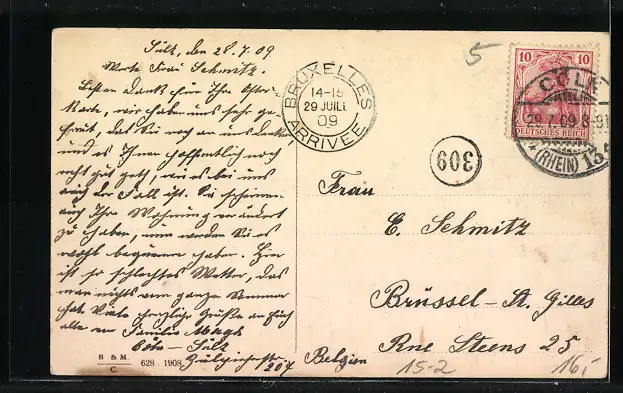 Sülz, den 28.7.09
Werte Frau Schmitz.
Besten Dank für Ihre Oster-
Karte, wir haben uns sehr ge-
freut, das Sie noch an uns denken
und es Ihnen hoffentlich noch
recht gut geht, wie es bei uns
auch der Fall ist. Sie scheinen
auch Ihre Wohnung verändert
zu haben, nun werden Sie es
wohl bequemer haben. Hier
ist so schlechtes Wetter, das
man nichts vom ganzen Sommer
hat. Viele herzliche Grüße an Euch
alle von Familie
Cöln - Sülz
204
B & M.
C.
628 1908
BRUXELLES
14-15
29 JUIL
09
ARRIVEE
309
5
10 10
DEUTSCHES REICH
CÖLN
29.7.09.8-9
*(RHEIN) 13
Frau
E. Schmitz
Brüssel - St. Gilles
Rue Steens 25
Belgien
15-2
16,-